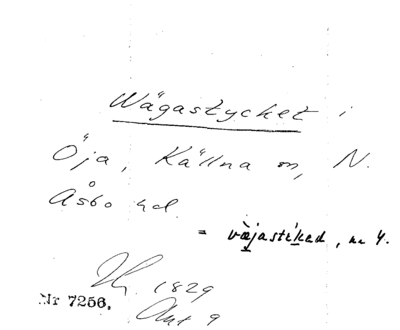 Wägastycket i
Öja, Källna sn, N.
Åsbo hd.
= väjastiked, nr 4.
1829
Nr 7256.